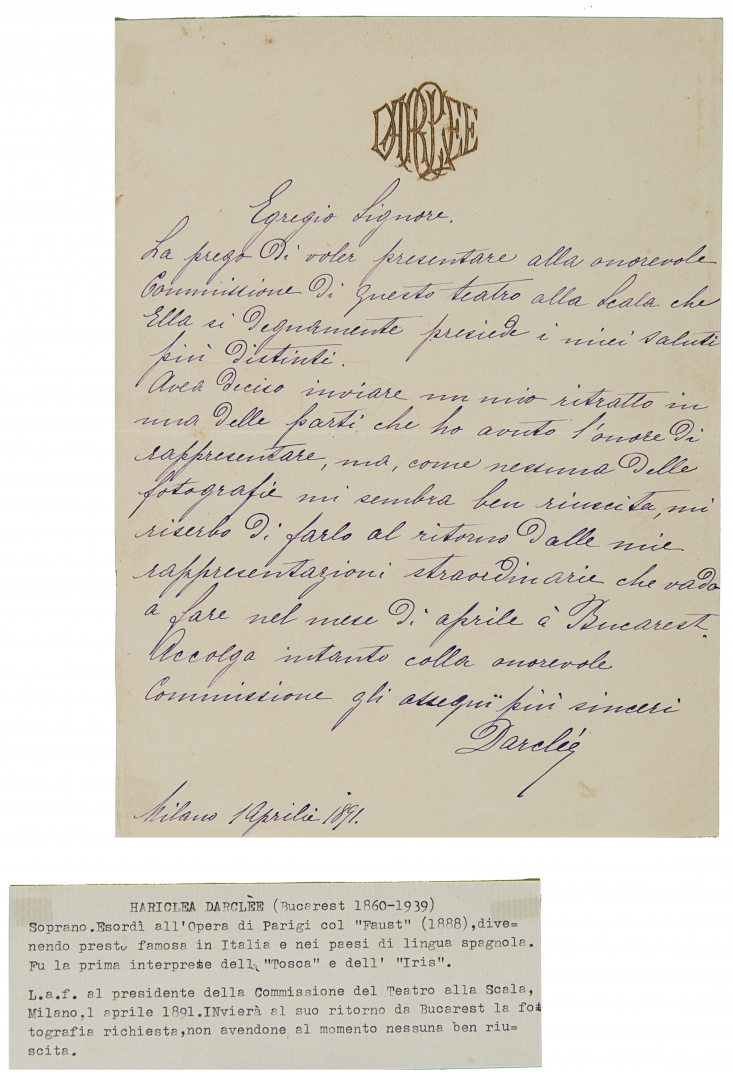 DARCLÉE
Egregio Signore.
La prego di voler presentare alla onorevole
Commissione di questo teatro alla Scala che
Ella si degnamente presiede i miei saluti
più distinti.
Avea deciso inviare un mio ritratto in
una delle parti che ho avuto l'onore di
rappresentare, ma, come nessuna delle
fotografie mi sembra ben riuscita, mi
riserbo di farlo al ritorno dalle mie
rappresentazioni straordinarie che vado
a fare nel mese di aprile à Bucarest.
Accolga intanto colla onorevole
Commissione gli assequi più sinceri
Darclée
Milano 1 Aprile 1891.
HARICLEA DARCLÈE (Bucarest 1860-1939)
Soprano.Esordì all'Opera di Parigi col "Faust" (1888),dive=
nendo presto famosa in Italia e nei paesi di lingua spagnola.
Fu la prima interprete della "Tosca" e dell' "Iris".
L.a.f. al presidente della Commissione del Teatro alla Scala,
Milano,1 aprile 1891.INvierà al suo ritorno da Bucarest la fo=
tografia richiesta,non avendone al momento nessuna ben riu=
scita.